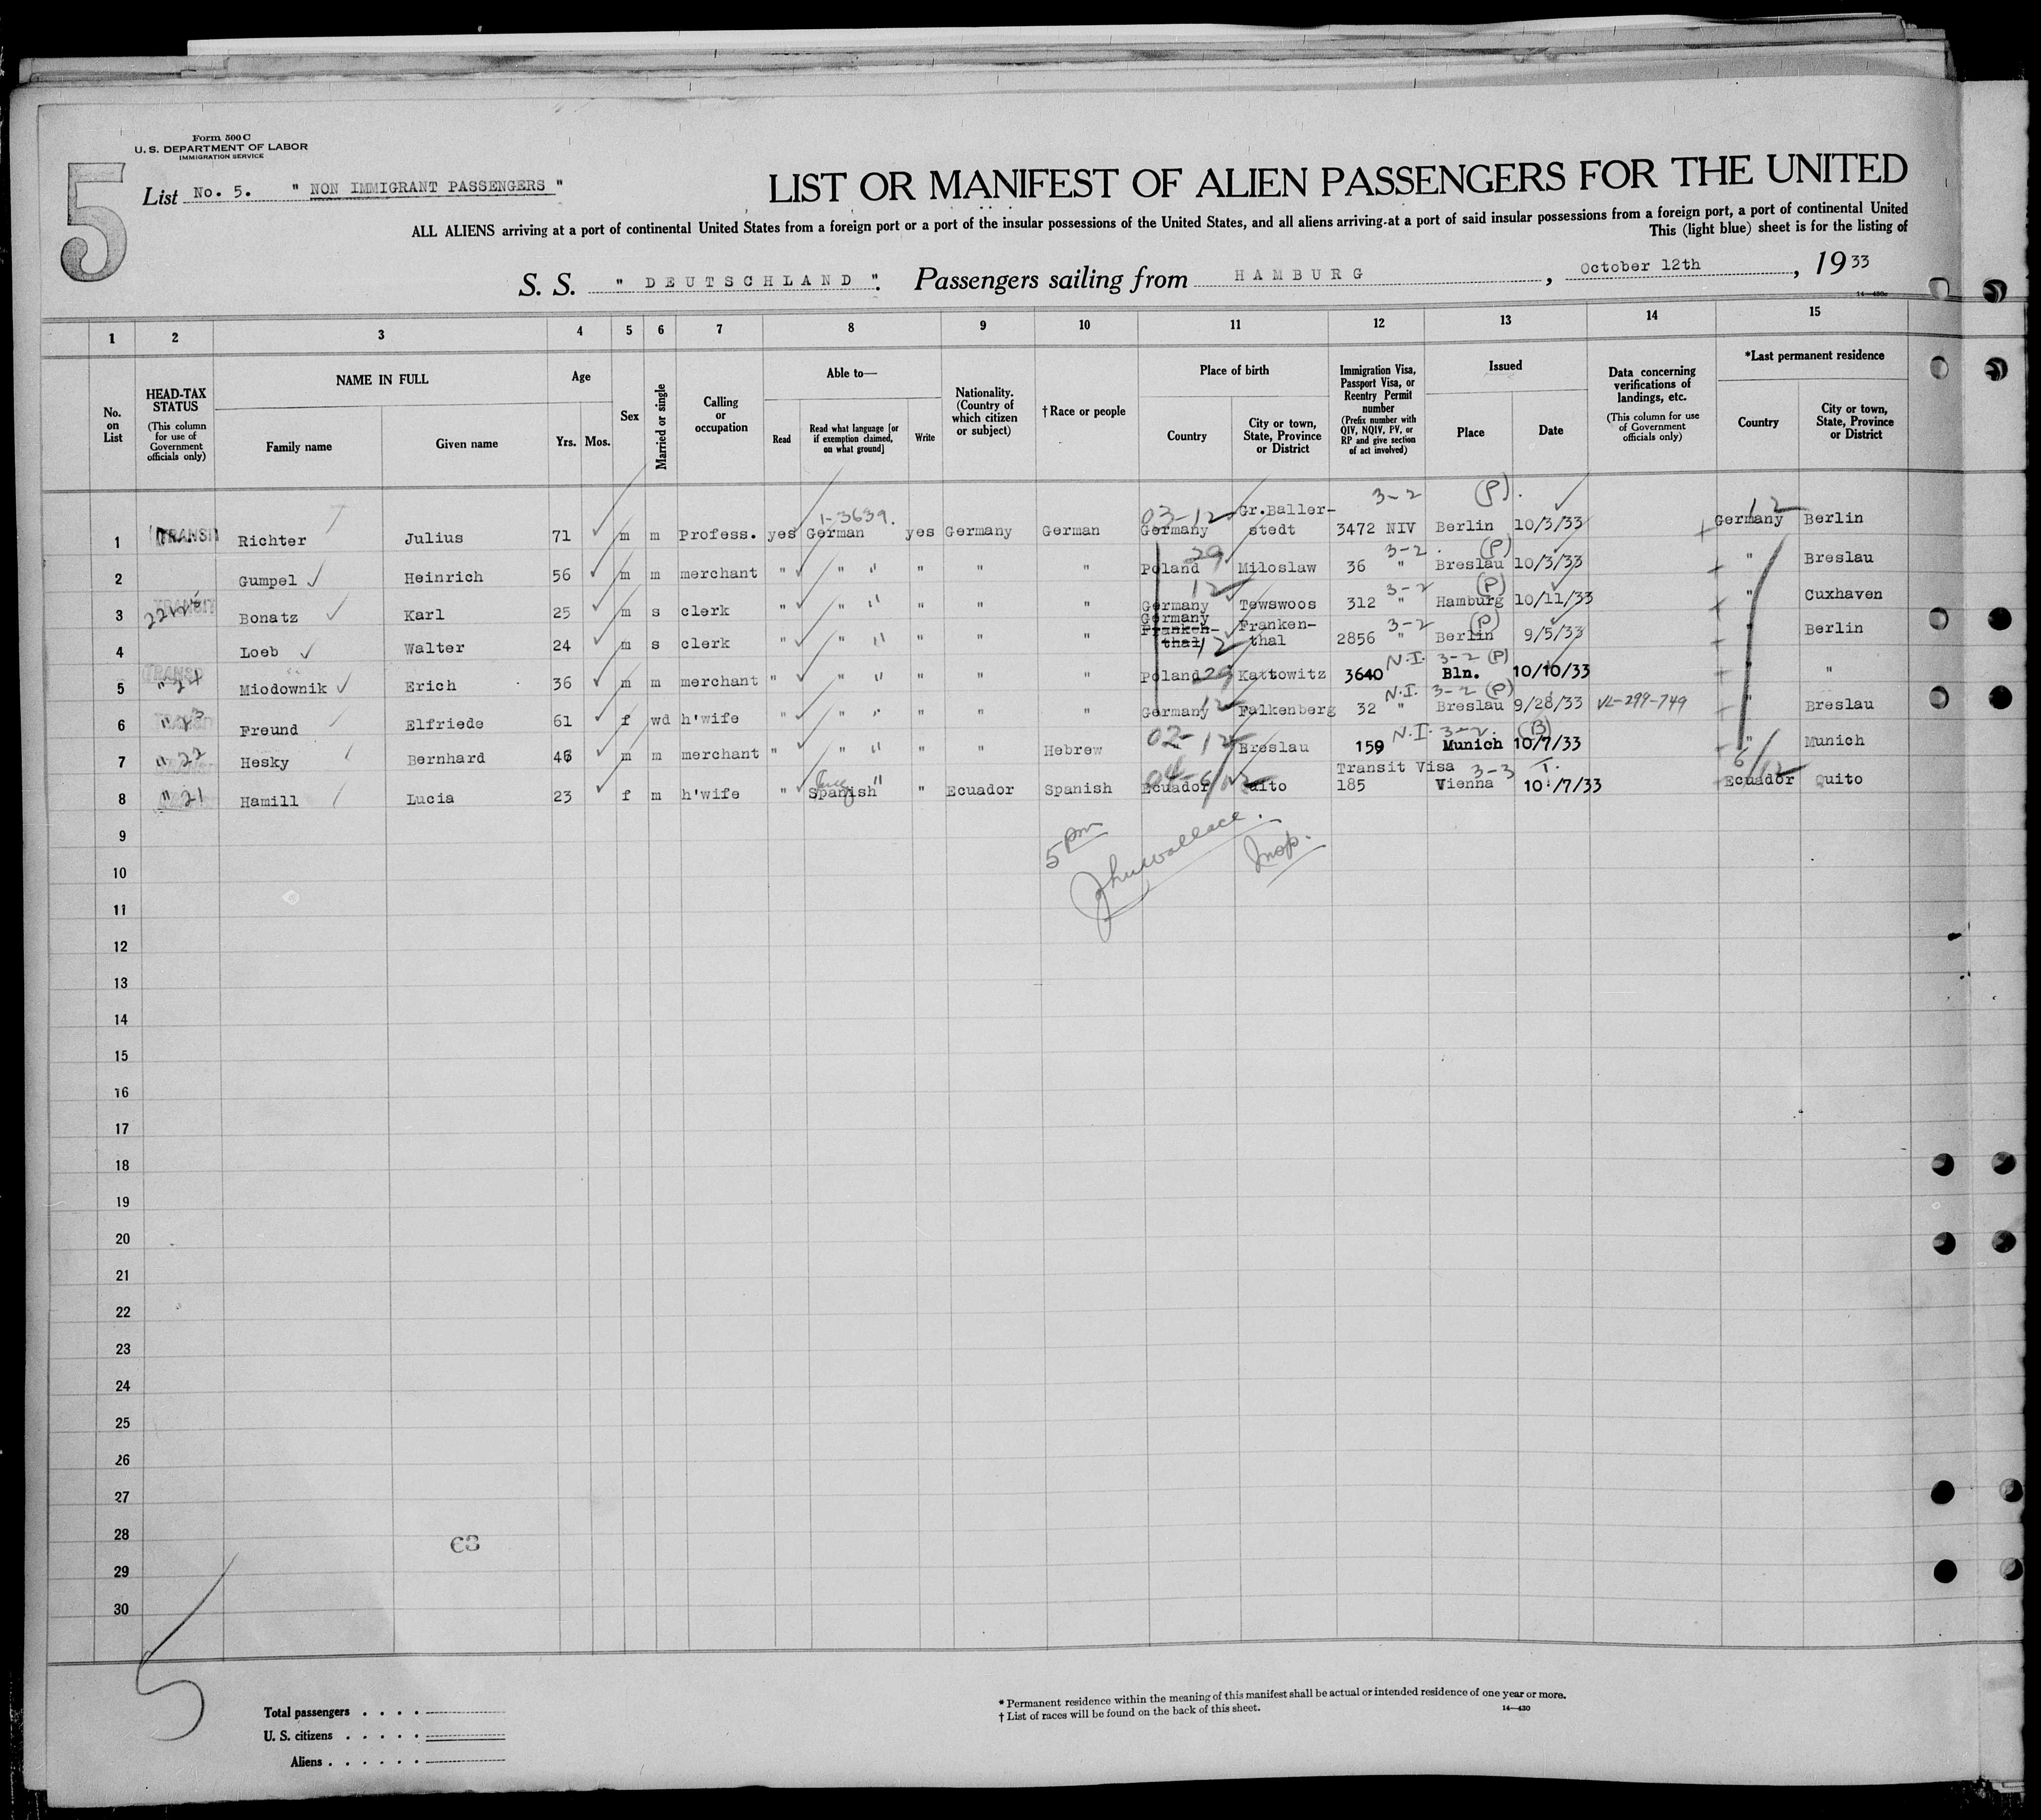 Form 500 C
U. S. DEPARTMENT OF LABOR
IMMIGRATION SERVICE
5
List No. 5. " NON IMMIGRANT PASSENGERS "
LIST OR MANIFEST OF ALIEN PASSENGERS FOR THE UNITED
ALL ALIENS arriving at a port of continental United States from a foreign port or a port of the insular possessions of the United States, and all aliens arriving at a port of said insular possessions from a foreign port, a port of continental United
This (light blue) sheet is for the listing of
S. S. " DEUTSCHLAND ". Passengers sailing from HAMBURG, October 12th, 1933
14—430c
1 2 3 4 5 6 7 8 9 10 11 12 13 14 15
No. on List
HEAD-TAX STATUS (This column for use of Government officials only)
NAME IN FULL
Family name
Given name
Age
Yrs. Mos.
Sex
Married or single
Calling or occupation
Able to—
Read
Read what language [or if exemption claimed, on what ground]
Write
Nationality. (Country of which citizen or subject)
† Race or people
Place of birth
Country
City or town, State, Province or District
Immigration Visa, Passport Visa, or Reentry Permit number (Prefix number with QIV, NQIV, PV, or RP and give section of act involved)
Issued
Place
Date
Data concerning verifications of landings, etc. (This column for use of Government officials only)
*Last permanent residence
Country
City or town, State, Province or District
1-3639. 03-12 3-2 (P). 12
1 TRANSIT Richter Julius 71 m m Profess. yes German yes Germany German Germany Gr.Ballerstedt 3472 NIV Berlin 10/3/33 Germany Berlin
29 3-2 (P)
2 Gumpel Heinrich 56 m m merchant " " " " " " Poland Miloslaw 36 " Breslau 10/3/33 " Breslau
12 3-2 (P)
3 TRANSIT Bonatz Karl 25 m s clerk " " " " " " Germany Tewswoos 312 " Hamburg 10/11/33 " Cuxhaven
12 3-2 (P)
4 Loeb Walter 24 m s clerk " " " " " " Germany Franken-thal Franken-thal 2856 " Berlin 9/5/33 " Berlin
29 N.I. 3-2 (P)
5 TRANSIT " 24 Miodownik Erich 36 m m merchant " " " " " " Poland Kattowitz 3640 Bln. 10/10/33 " "
12 N.I. 3-2 (P)
6 " 23 Freund Elfriede 61 f wd h'wife " " " " " " Germany Falkenberg 32 " Breslau 9/28/33 VL-299-749 " Breslau
02-12 N.I. 3-2. (B)
7 " 22 Hesky Bernhard 46 m m merchant " " " " " Hebrew " Breslau 159 Munich 10/7/33 " Munich
Transit Visa 3-3 T. 6/12
8 " 21 Hamill Lucia 23 f m h'wife " Spanish " " Ecuador Spanish Ecuador Quito 185 Vienna 10/7/33 Ecuador Quito
9
5 pm
John Wallace. Insp.
10
11
12
13
14
15
16
17
18
19
20
21
22
23
24
25
26
27
28
63
29
30
5
Total passengers . . . .
U. S. citizens . . . . .
Aliens . . . . . .
* Permanent residence within the meaning of this manifest shall be actual or intended residence of one year or more.
† List of races will be found on the back of this sheet.
14—430